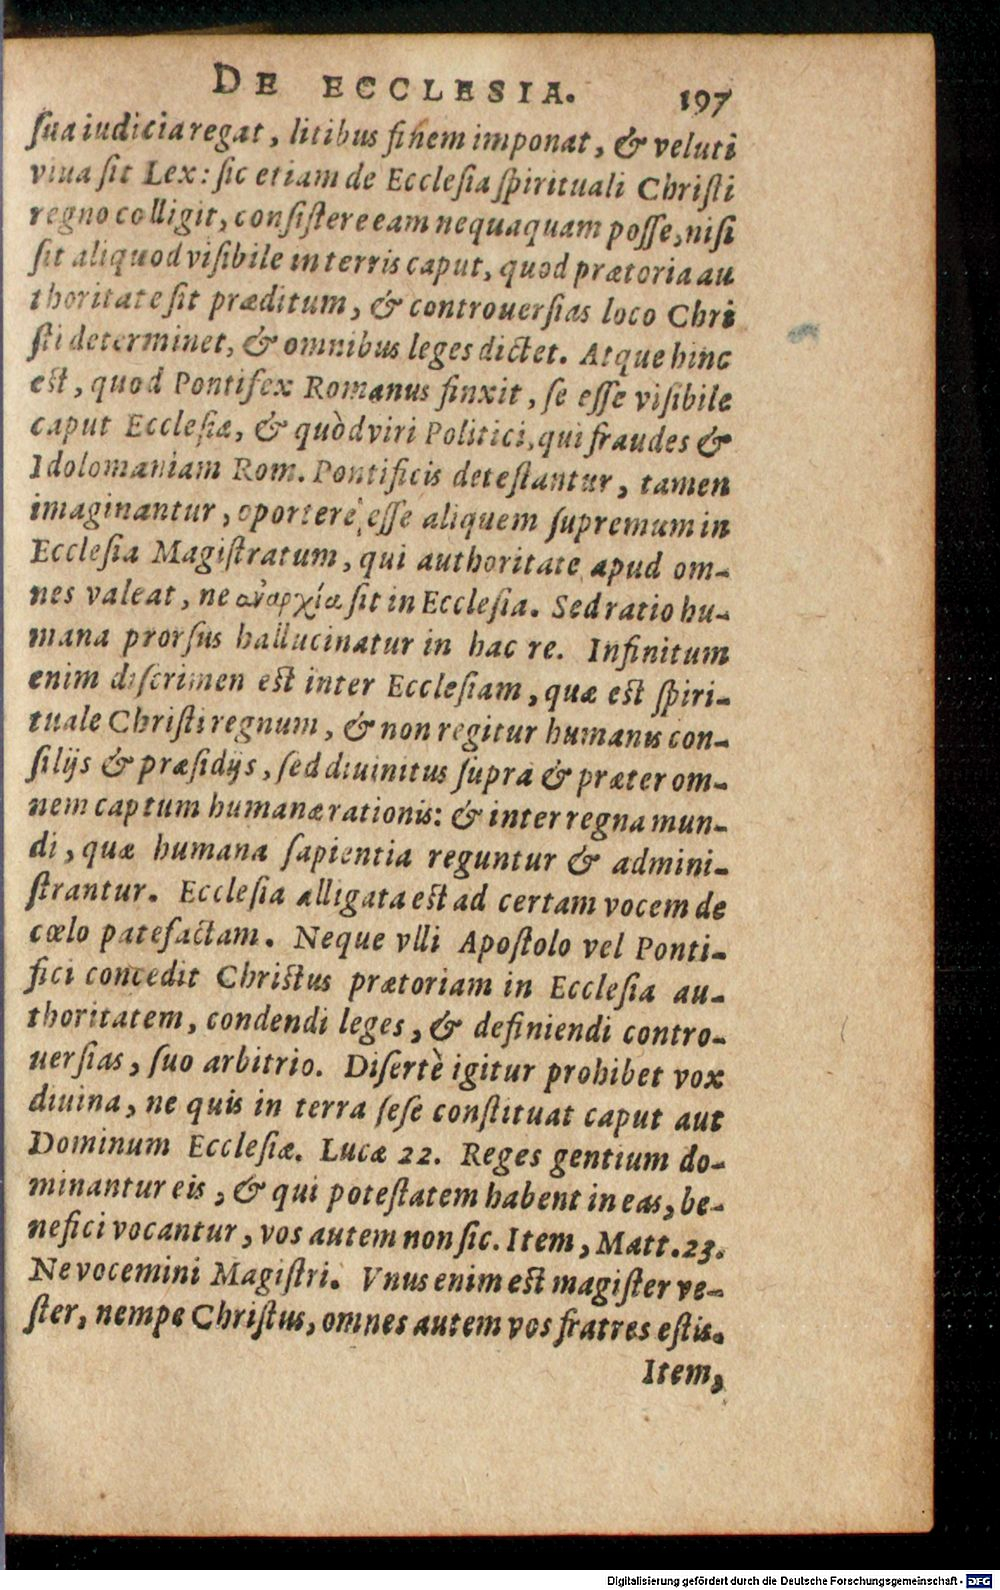 DE ECCLESIA. 197
ſua iudicia regat, litibus finem imponat, & veluti
viua ſit Lex: ſic etiam de Eccleſia ſpirituali Chriſti
regno colligit, conſiſtere eam nequaquam poſſe, niſi
ſit aliquod viſibile in terris caput, quod prætoria au
thoritate ſit præditum, & controuerſias loco Chri
ſti determinet, & omnibus leges dictet. Atque hinc
est, quod Pontifex Romanus finxit, ſe eſſe viſibile
caput Eccleſiæ, & quòd viri Politici, qui fraudes &
Idolomaniam Rom. Pontificis deteſtantur, tamen
imaginantur, oportere eſſe aliquem ſupremum in
Eccleſia Magiſtratum, qui authoritate apud om-
nes valeat, ne ἀναρχία ſit in Eccleſia. Sed ratio hu-
mana prorſus hallucinatur in hac re. Infinitum
enim diſcrimen est inter Eccleſiam, quæ est ſpiri-
tuale Chriſti regnum, & non regitur humanis con-
ſilijs & præſidijs, ſed diuinitus ſupra & præter om-
nem captum humanæ rationis: & inter regna mun-
di, quæ humana ſapientia reguntur & admini-
ſtrantur. Eccleſia alligata est ad certam vocem de
cœlo patefactam. Neque vlli Apoſtolo vel Ponti-
fici concedit Christus prætoriam in Eccleſia au-
thoritatem, condendi leges, & definiendi contro-
uerſias, ſuo arbitrio. Diſertè igitur prohibet vox
diuina, ne quis in terra ſeſe conſtituat caput aut
Dominum Eccleſiæ. Lucæ 22. Reges gentium do-
minantur eis, & qui poteſtatem habent in eas, be-
nefici vocantur, vos autem non ſic. Item, Matt. 23.
Ne vocemini Magiſtri. Vnus enim est magiſter ve-
ſter, nempe Chriſtus, omnes autem vos fratres eſtis.
Item,
Digitalisierung gefördert durch die Deutsche Forschungsgemeinschaft - DFG